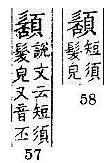 短須
髮皃
58
說文云短須
髮皃又音丕
57